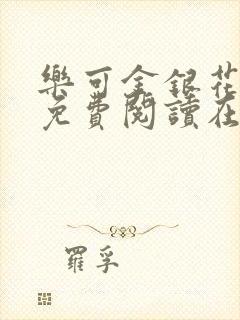 樂可金銀花
免費閱讀在
羅孚